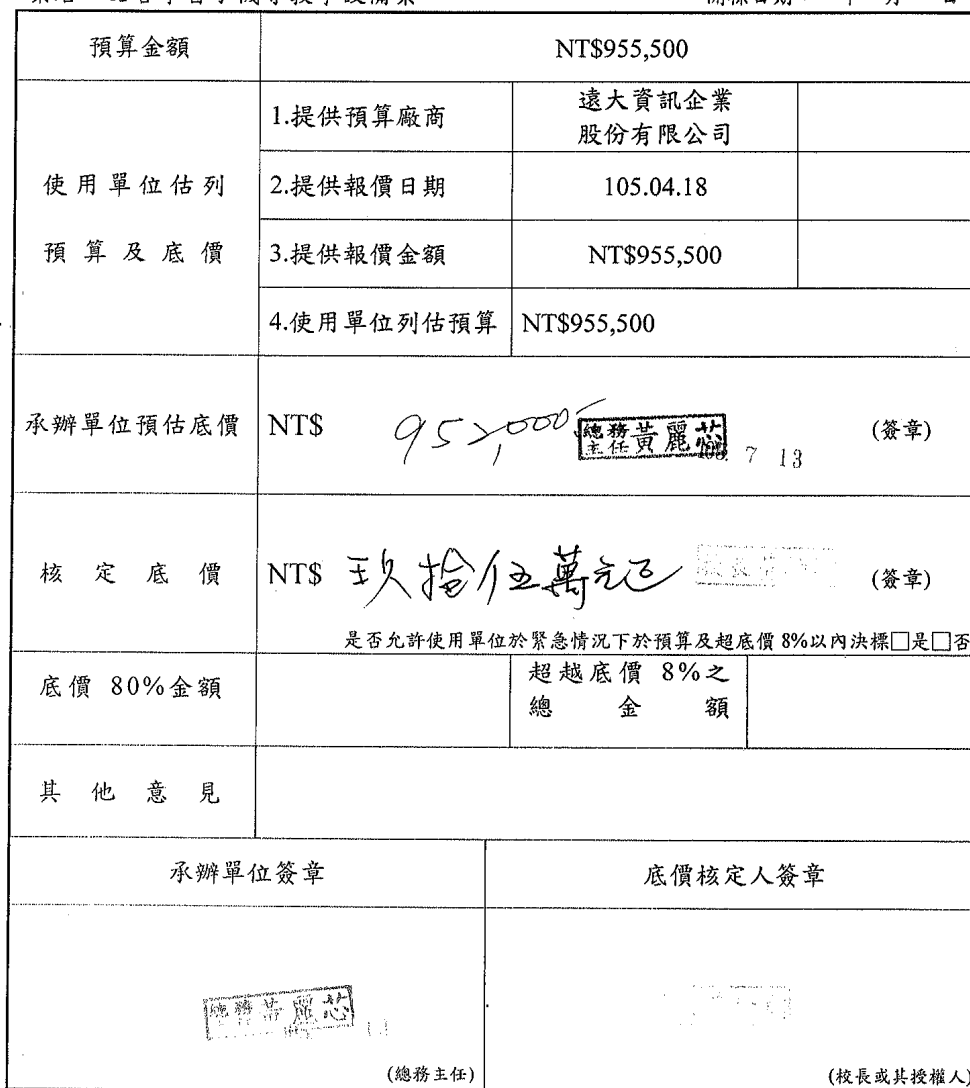 預算金額 NT$955,500
使用單位估列
預算及底價
1.提供預算廠商 遠大資訊企業
股份有限公司
2.提供報價日期 105.04.18
3.提供報價金額 NT$955,500
4.使用單位列估預算 NT$955,500
承辦單位預估底價 NT$ 952,000 總務主任 黃麗芯 7 13 (簽章)
核定底價 NT$ 玖拾伍萬元正 (簽章)
是否允許使用單位於緊急情況下於預算及超底價 8%以內決標□是□否
底價 80%金額 超越底價 8%之
總金額
其他意見
承辦單位簽章 底價核定人簽章
總務 黃麗芯
(總務主任) (校長或其授權人)